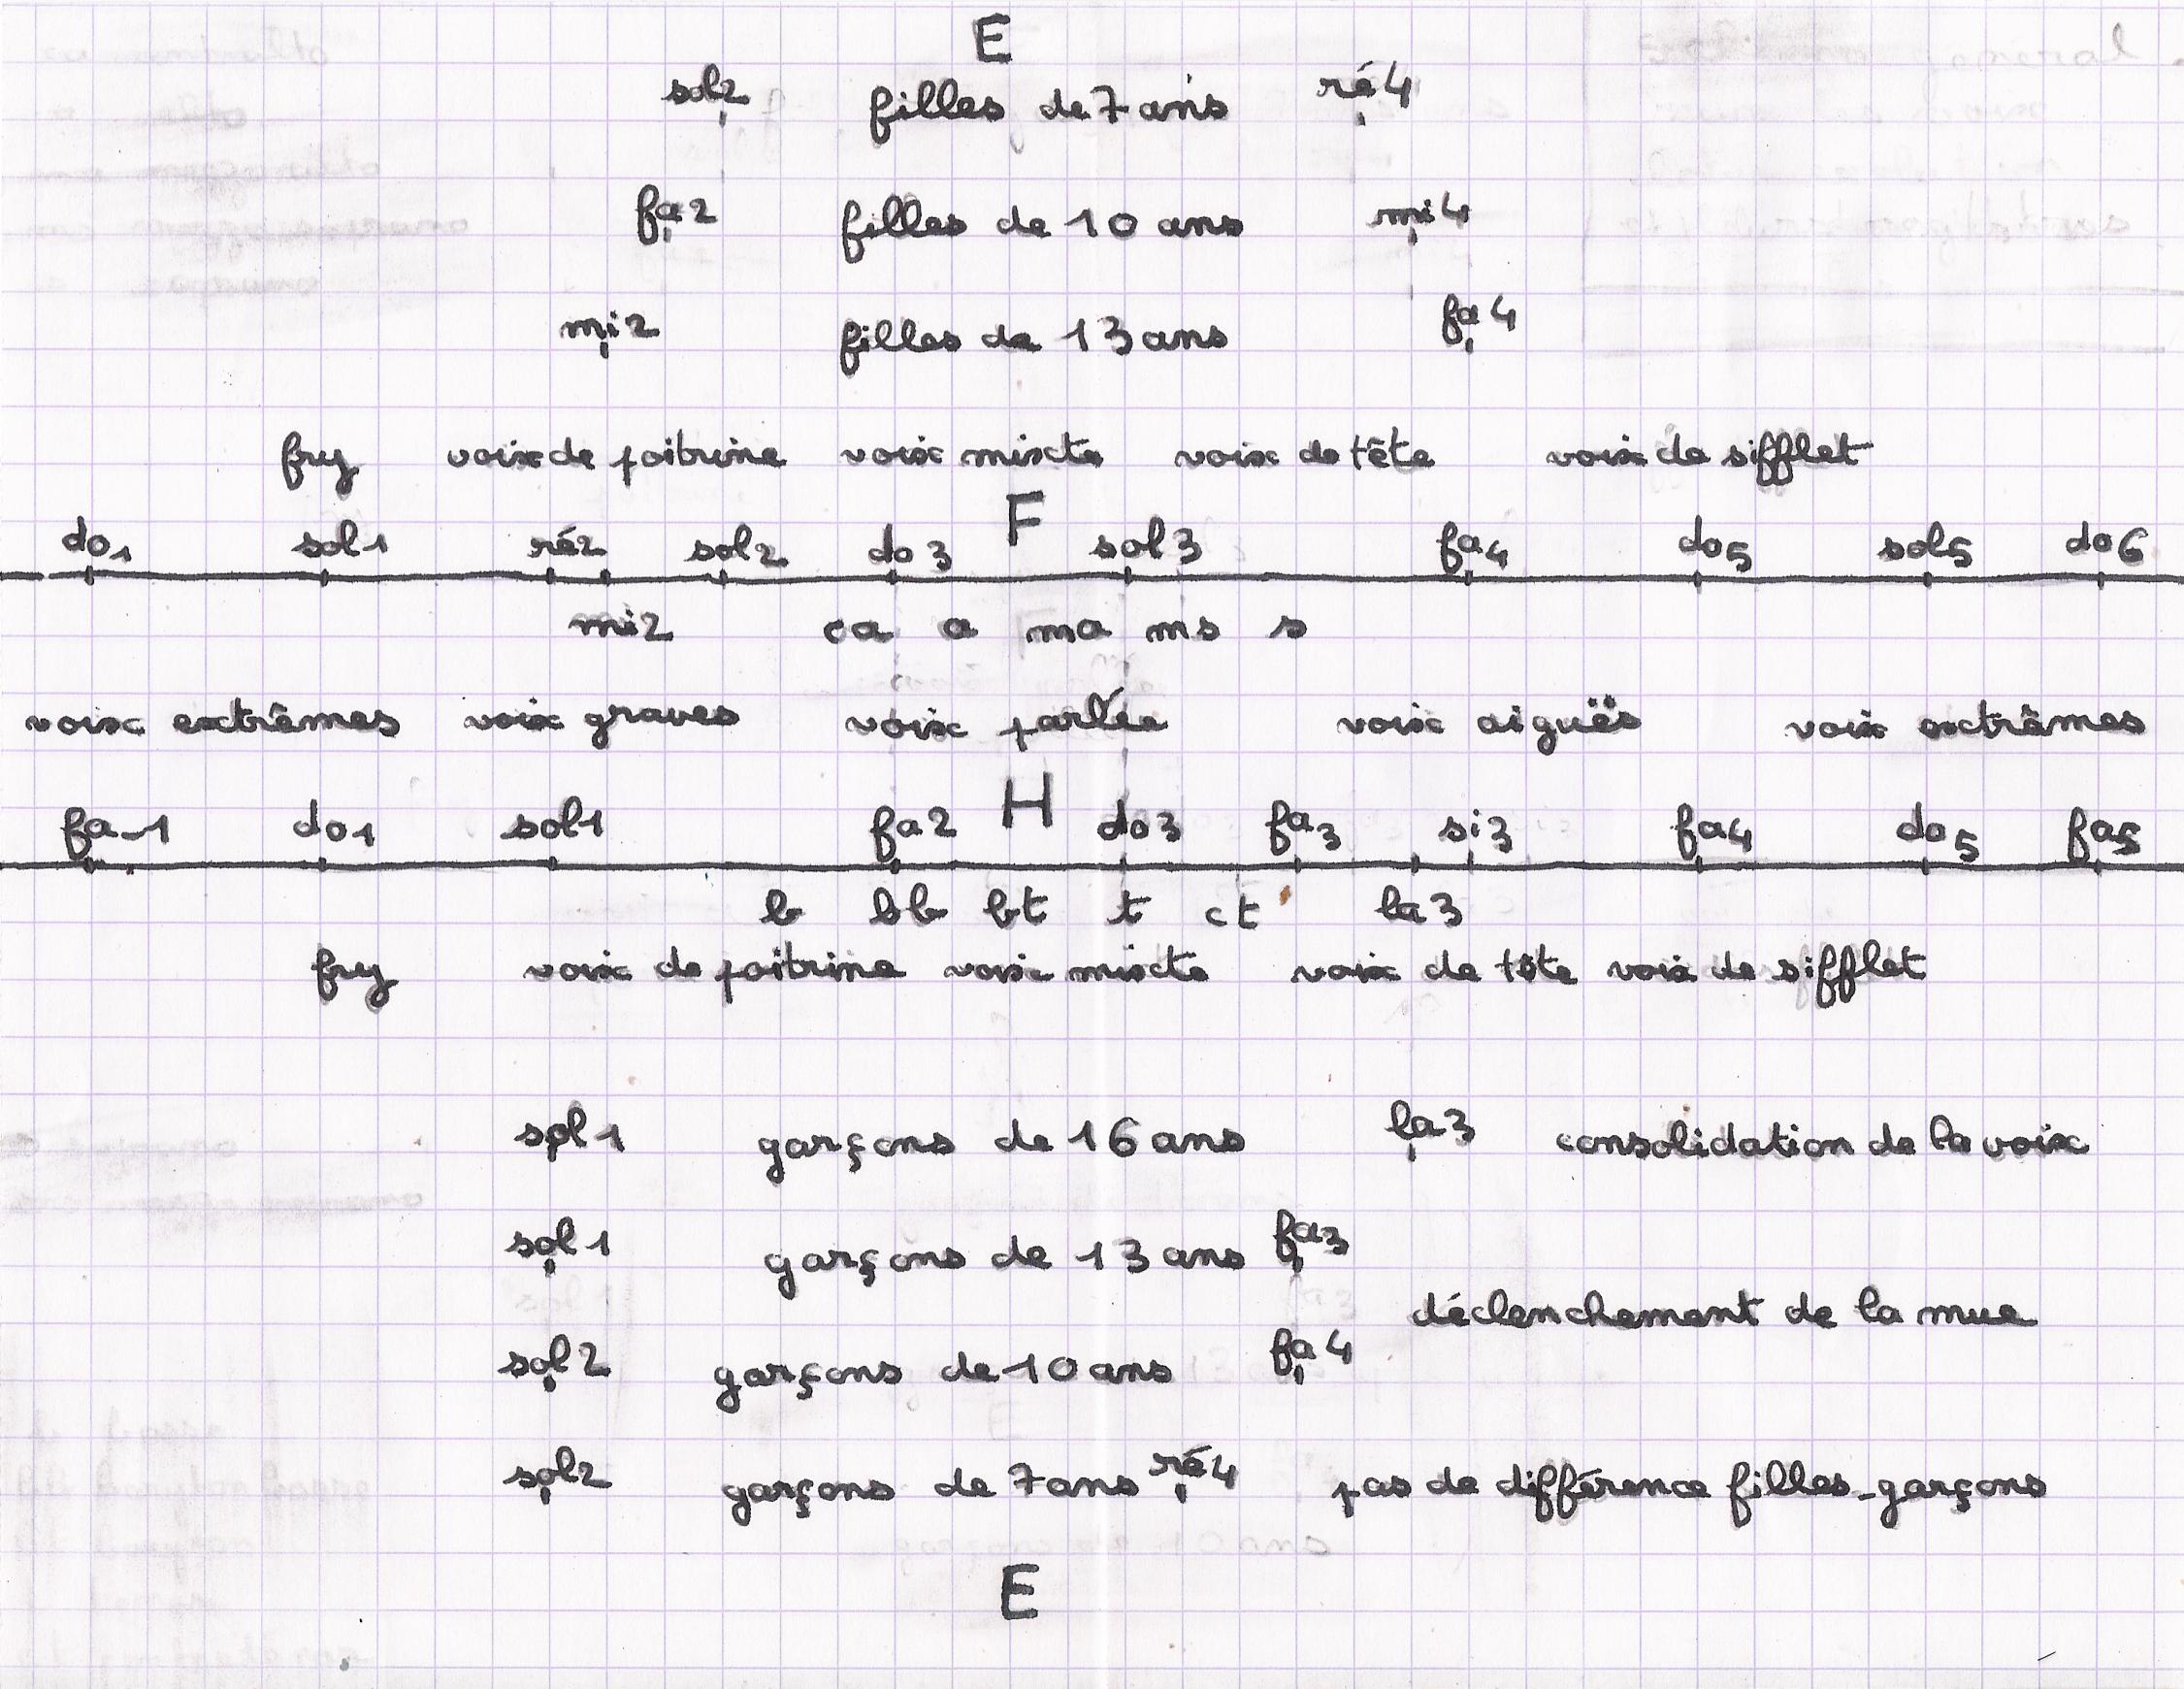 E
sol2 filles de 7 ans ré4
fa2 filles de 10 ans mi4
mi2 filles de 13 ans fa4
fry voix de poitrine voix mixte voix de tête voix de sifflet
F
do1 sol1 ré2 sol2 do3 sol3 fa4 do5 sol5 do6
mi2 ca a ma ms s
voix extrêmes voix graves voix parlée voix aiguës voix extrêmes
H
fa-1 do1 sol1 fa2 do3 fa3 si3 fa4 do5 fa5
b bb bt t ct la3
fry voix de poitrine voix mixte voix de tête voix de sifflet
sol1 garçons de 16 ans la3 consolidation de la voix
sol1 garçons de 13 ans fa3
déclenchement de la mue
sol2 garçons de 10 ans fa4
sol2 garçons de 7 ans ré4 pas de différence filles-garçons
E